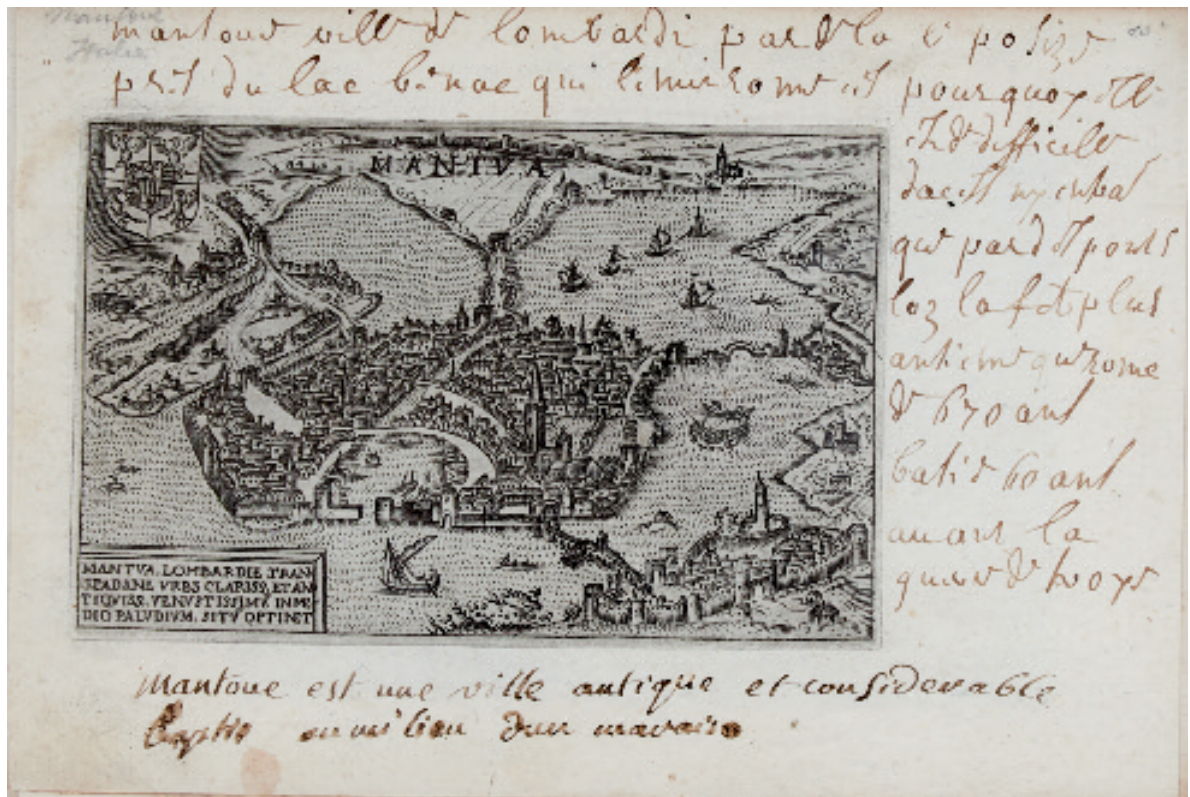 Mantoue
Italie
mantoue ville de lombardi par dela le po size
pres du lac benac qui lenuironne est pourquoy elle
est de difficille
daces ny entra
que par des ponts
loz la fet plus
antienne que rome
de 670 ans
batie 60 ans
auant la
guere de troye
MANTVA
MANTVA. LOMBARDIE TRAN
SPADANE VRBS CLARISS, ET AN
TIQVISS. VENVSTISSIMA IN ME
DIO PALVDIVM. SITV OPTINET
Mantoue est une ville antique et considerable
au milieu dun marais